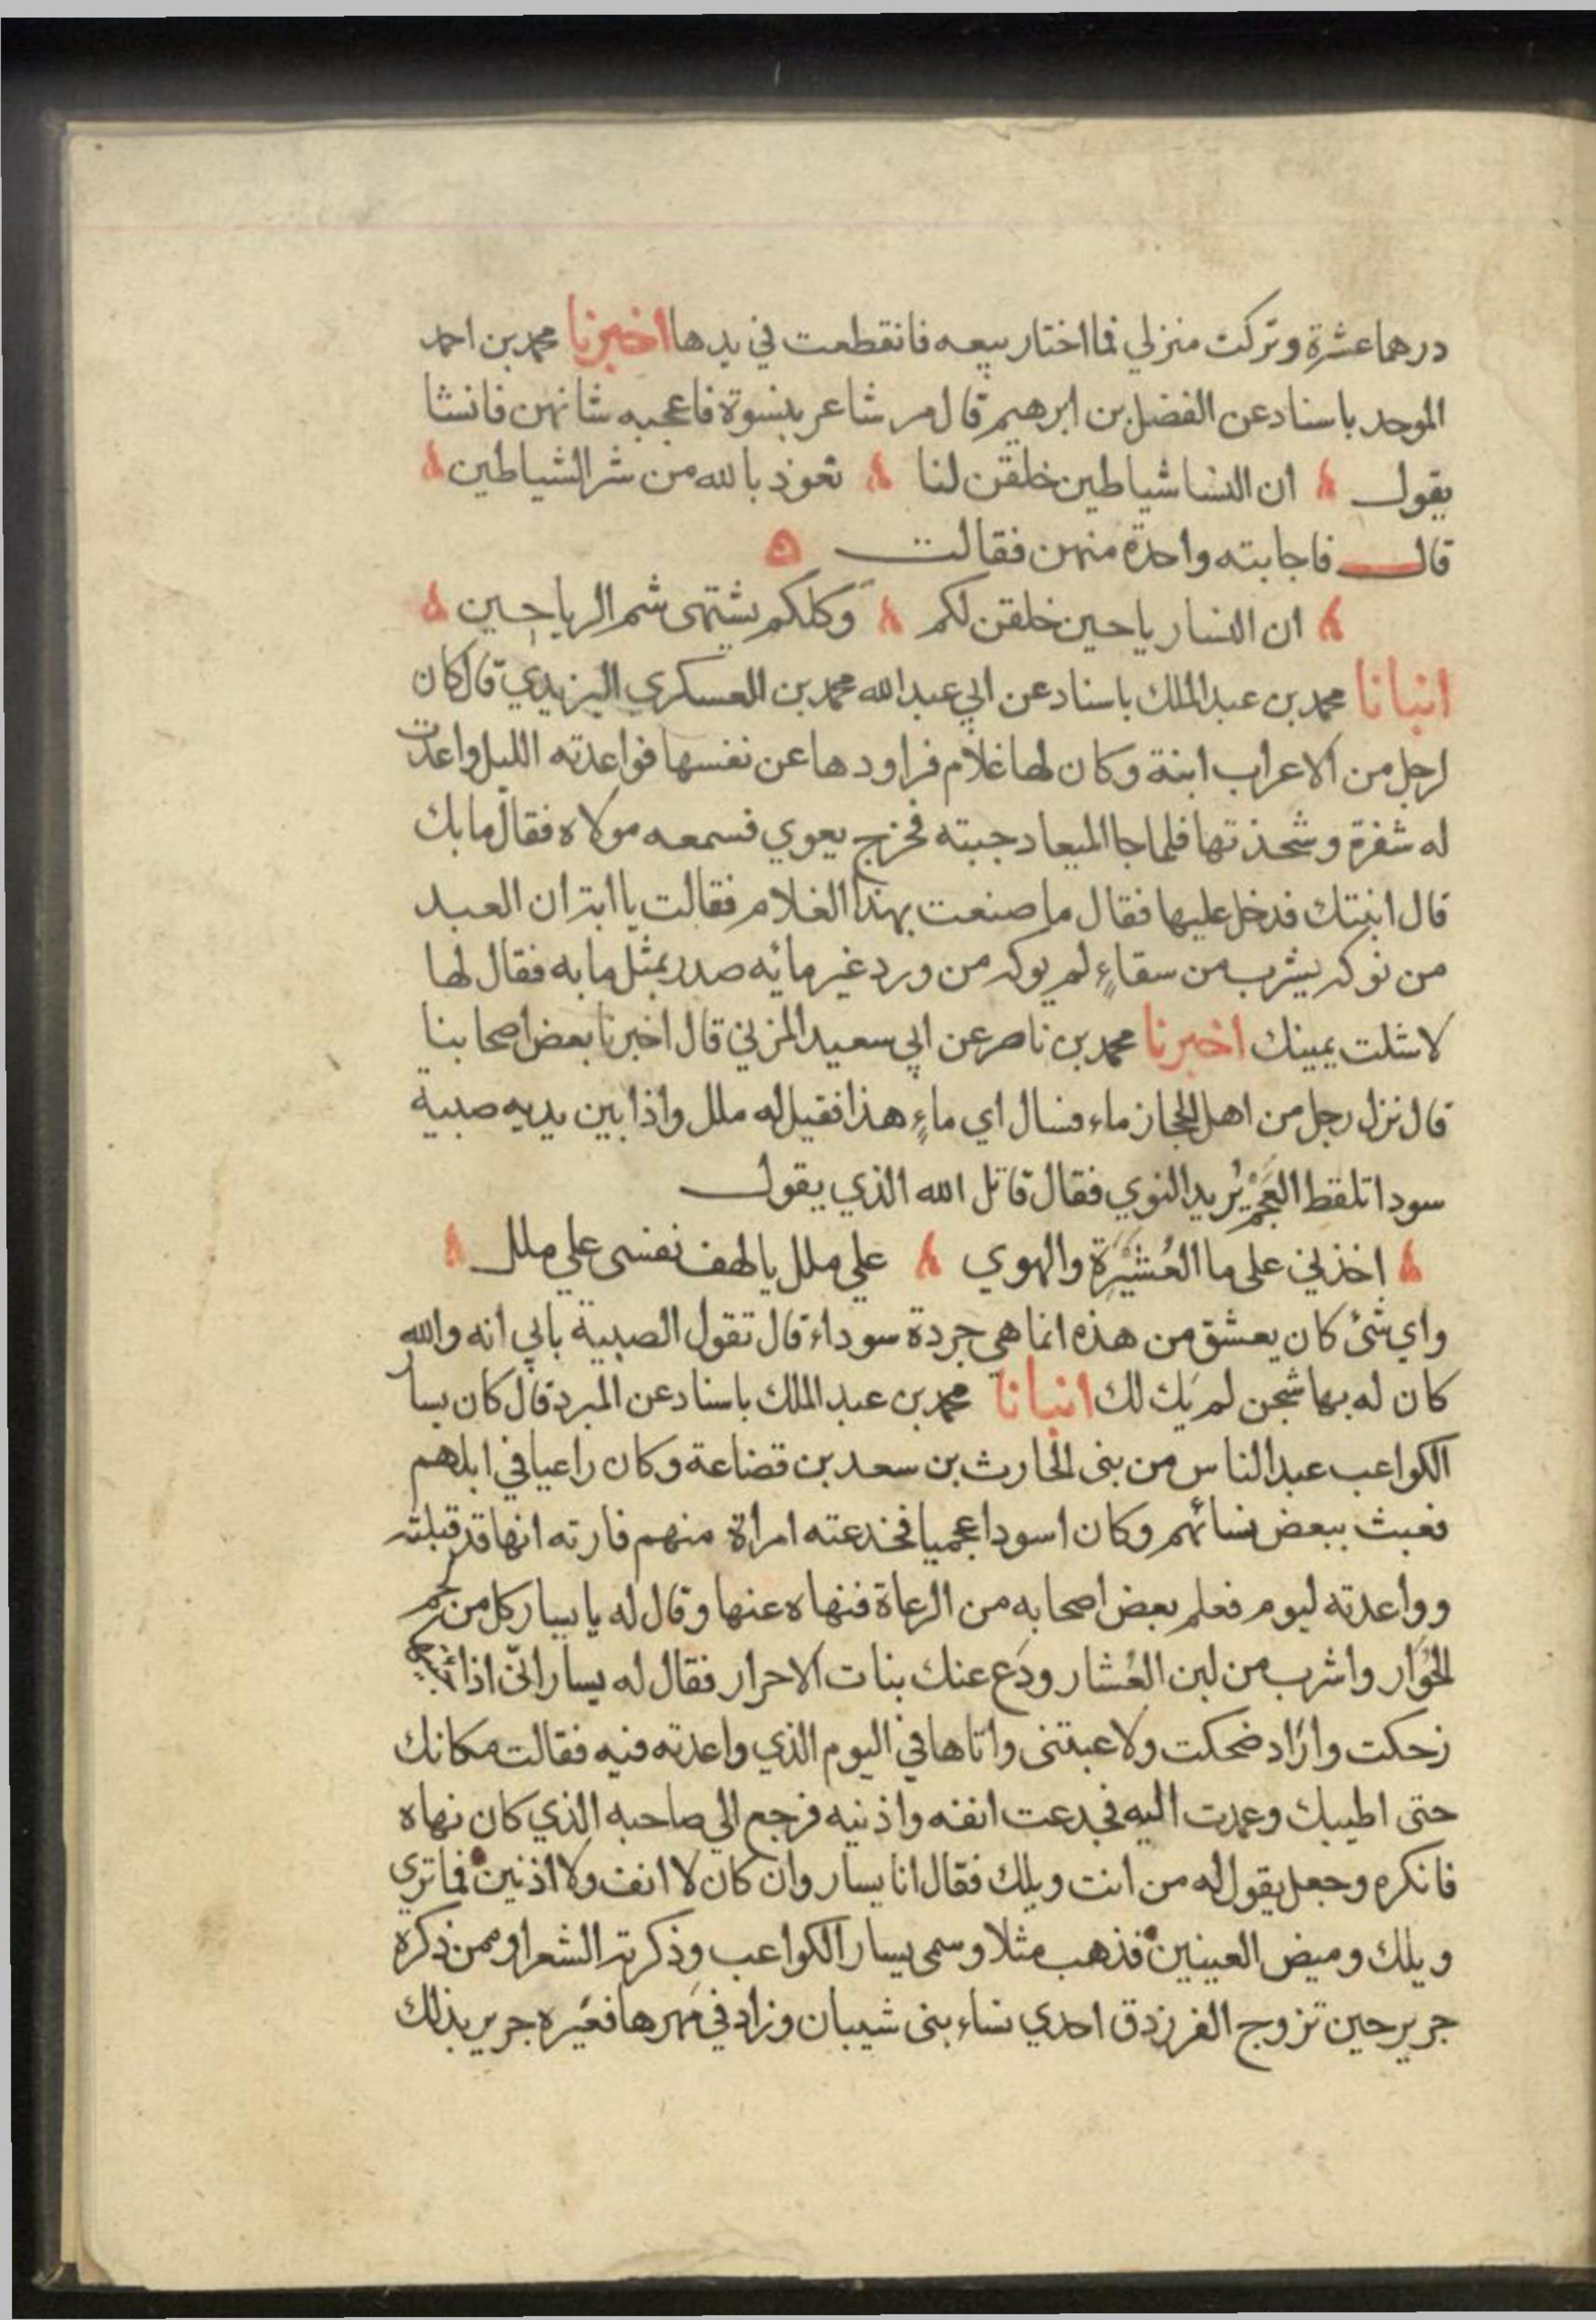 درهما عشرة وتركت منزلي فما اختار بيعه فانقطعت في يدها اخبرنا محمد بن احمد
الموحد باسناد عن الفضل بن ابرهيم قال مر شاعر بنسوة فاعجبه شانهن فانشا
يقول ان النسا شياطين خلقن لنا نعوذ بالله من شر الشياطين
قال فاجابته واحدة منهن فقالت
ان النسا رياحين خلقن لكم وكلكم يشتهى شم الرياحين
انبانا محمد بن عبد الملك باسناد عن ابي عبد الله محمد بن العسكري اليزيدي قال كان
لرجل من الاعراب ابنة وكان لها غلام فراودها عن نفسها فواعدته الليل واعدت
له شفرة وشحذتها فلما جا الميعاد جبته فخرج يعوي فسمعه مولاه فقال ما بك
قال ابنتك فدخل عليها فقال ما صنعت بهذا الغلام فقالت يا ابة ان العبد
من نوكه يشرب من سقاءٍ لم يوكه من ورد غير مائه صدر بمثل ما به فقال لها
لا شلت يمينك اخبرنا محمد بن ناصر عن ابي سعيد المزني قال اخبرنا بعض اصحابنا
قال نزل رجل من اهل الحجاز ماء فسال اي ماءٍ هذا فقيل له ملل واذا بين يديه صبية
سودا تلقط العَجَم يُريد النوي فقال قاتل الله الذي يقول
اخذني على ما العُشَيْرَة والهوي علي ملل يا لهف نفسى علي ملل
واي شئ كان يعشق من هذه انما هي جردة سوداء قال تقول الصبية بابي انه والله
كان له بها شجن لم يَك لك انبانا محمد بن عبد الملك باسناد عن المبرد قال كان يسار
الكواعب عبد الناس من بنى الحارث بن سعد بن قضاعة وكان راعيا في ابلهم
فعبث ببعض نسائهم وكان اسود اعجميا فخدعته امراة منهم فارته انها قد قبلته
وواعدته ليوم فعلم بعض اصحابه من الرعاة فنهاه عنها وقال له يا يسار كل من لحم
الحُوَار واشرب من لبن العُشار ودَع عنك بنات الاحرار فقال له يسار انّى اذا
زحكت واراد ضحكت ولاعبتنى واتاها في اليوم الذي واعدته فيه فقالت مكانك
حتى اطيبك وعمدت اليه فجدعت انفه واذنيه فرجع الي صاحبه الذي كان نهاه
فانكره وجعل يقول له من انت ويلك فقال انا يسار وان كان لا انف ولا اذنين فما تري
ويلك وميض العينين فذهب مثلا وسمى يسار الكواعب وذكرته الشعرا وممن ذكره
جرير حين تزوج الفرزدق احدي نساء بنى شيبان وزاد في مَهرها فعَيره جرير بذلك